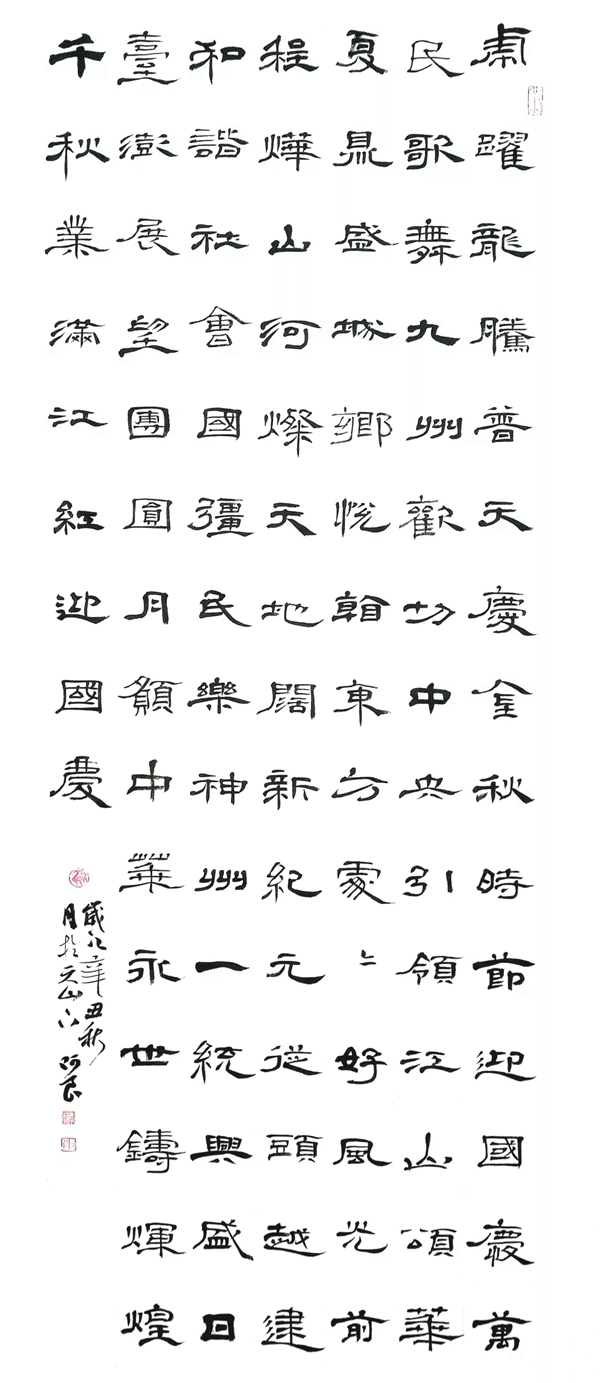 虎躍龍騰普天慶金秋時節迎國慶萬
民歌舞九州歡切中央引領江山頌華
夏鼎盛城鄉悅翰東方處〻好風光前
程燁山河燦天地闊新紀元從頭越建
和諧社會國彊民樂神州一統興盛日
臺澎展望團圓月願中華永世鑄輝煌
千秋業滿江紅迎國慶
歲次辛丑秋
月於天山下